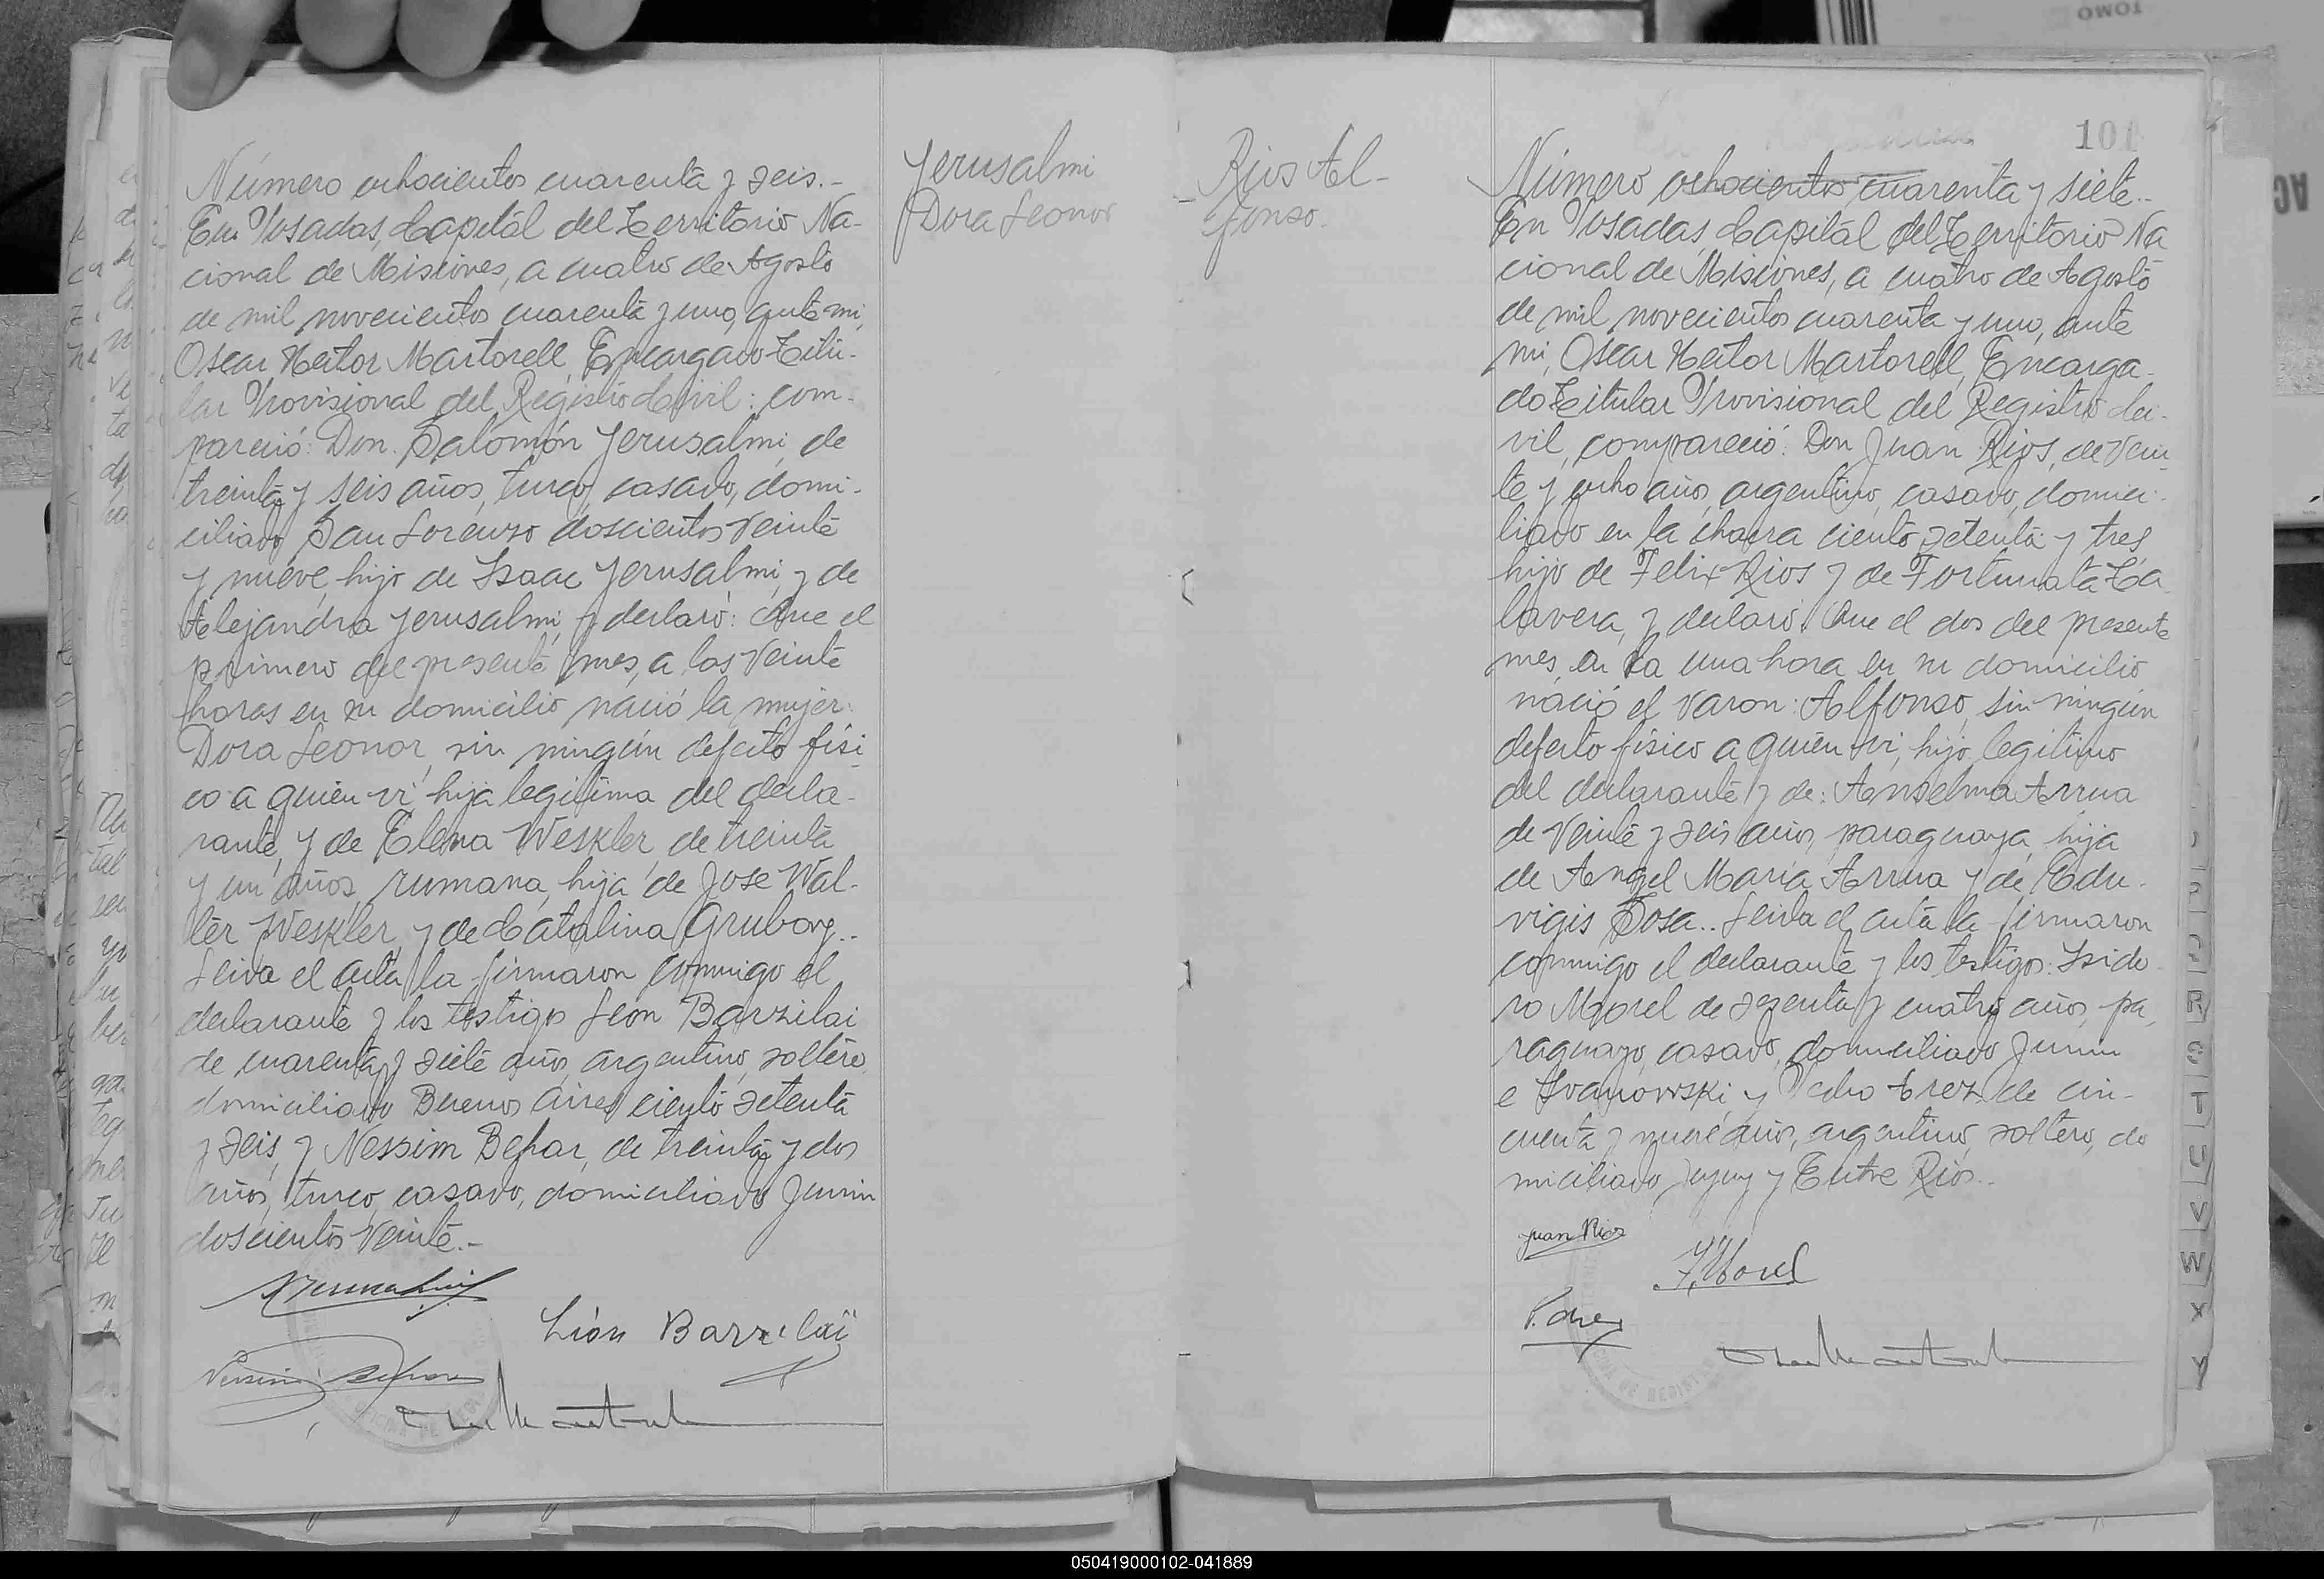 Jerusalmi
Dora Leonor
Número ochocientos cuarenta y seis.-
En Posadas, Capital del Territorio Na-
cional de Misiones, a cuatro de Agosto
de mil novecientos cuarenta y uno, ante mi,
Oscar Hector Martorell, Encargado Titu-
lar Provisional del Registro Civil: com-
pareció: Don. Salomón Jerusalmi, de
treinta y seis años, turco, casado, domi-
ciliado San Lorenzo doscientos veinte
y nueve, hijo de Isaac Jerusalmi, y de
Alejandra Jerusalmi, y declaró: Que el
primero del presente mes, a las veinte
horas en su domicilio nació la mujer:
Dora Leonor, sin ningún defecto físi-
co a quien vi, hija legitima del decla-
rante, y de Elena Weskler, de treinta
y un años, rumana, hija de Jose Wal-
ter Weskler, y de Catalina Gruborg..
Leida el acta la firmaron conmigo el
declarante y los testigos León Barzilai
de cuarenta y siete años, argentino, soltero,
domiciliado Buenos Aires ciento setenta
y seis, y Nessim Behar, de treinta y dos
años, turco, casado, domiciliado Junin
doscientos veinte.-
León Barzilaï
Rios Al-
fonso.
101
Número ochocientos cuarenta y siete.-
En Posadas, Capital del Territorio Na
cional de Misiones, a cuatro de Agosto
de mil novecientos cuarenta y uno, ante
mi, Oscar Hector Martorell, Encarga-
do Titular Provisional del Registro Ci-
vil, compareció: Don Juan Rios, de vein-
te y ocho años, argentino, casado, domici-
liado en la chacra ciento setenta y tres,
hijo de Felix Rios y de Fortunata Ta
lavera, y declaró: Que el dos del presente
mes, a la una hora en su domicilio
nació el varon: Alfonso, sin ningún
defecto físico a quien vi, hijo legitimo
del declarante y de: Anselma Arrua
de veinte y seis años, paraguaya, hija
de Angel María Arrua y de Edu-
vigis Sosa.. Leida el acta la firmaron
conmigo el declarante y los testigos: Isido-
ro Morel de sesenta y cuatro años, pa-
raguayo, casado, domiciliado Junin
e Ivanowski, y Pedro Arez de cin-
cuenta y nueve años, argentino, soltero, do
miciliado Jujuy y Entre Rios.-
Juan Rios
I. Morel
R
S
T
U
V
W
X
Y
TOMO
050419000102-041889